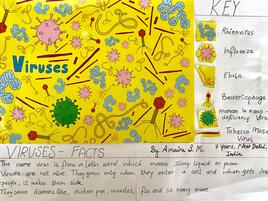 KEY
Rhinovirus
Influenza
Viruses
Ebola
Bacteriophage
Human immuno
deficiency Virus
Tobacco Mosaic
Virus
VIRUSES - FACTS
By Amaira S. M. 7 years, New Delhi,
India
The name virus is from a Latin word which means slimy liquid or poison
Viruses are not alive. They grow only when they enter a cell and when gets into
people, it makes them sick.
They cause diseases like, chicken pox, measles, flu and so many more